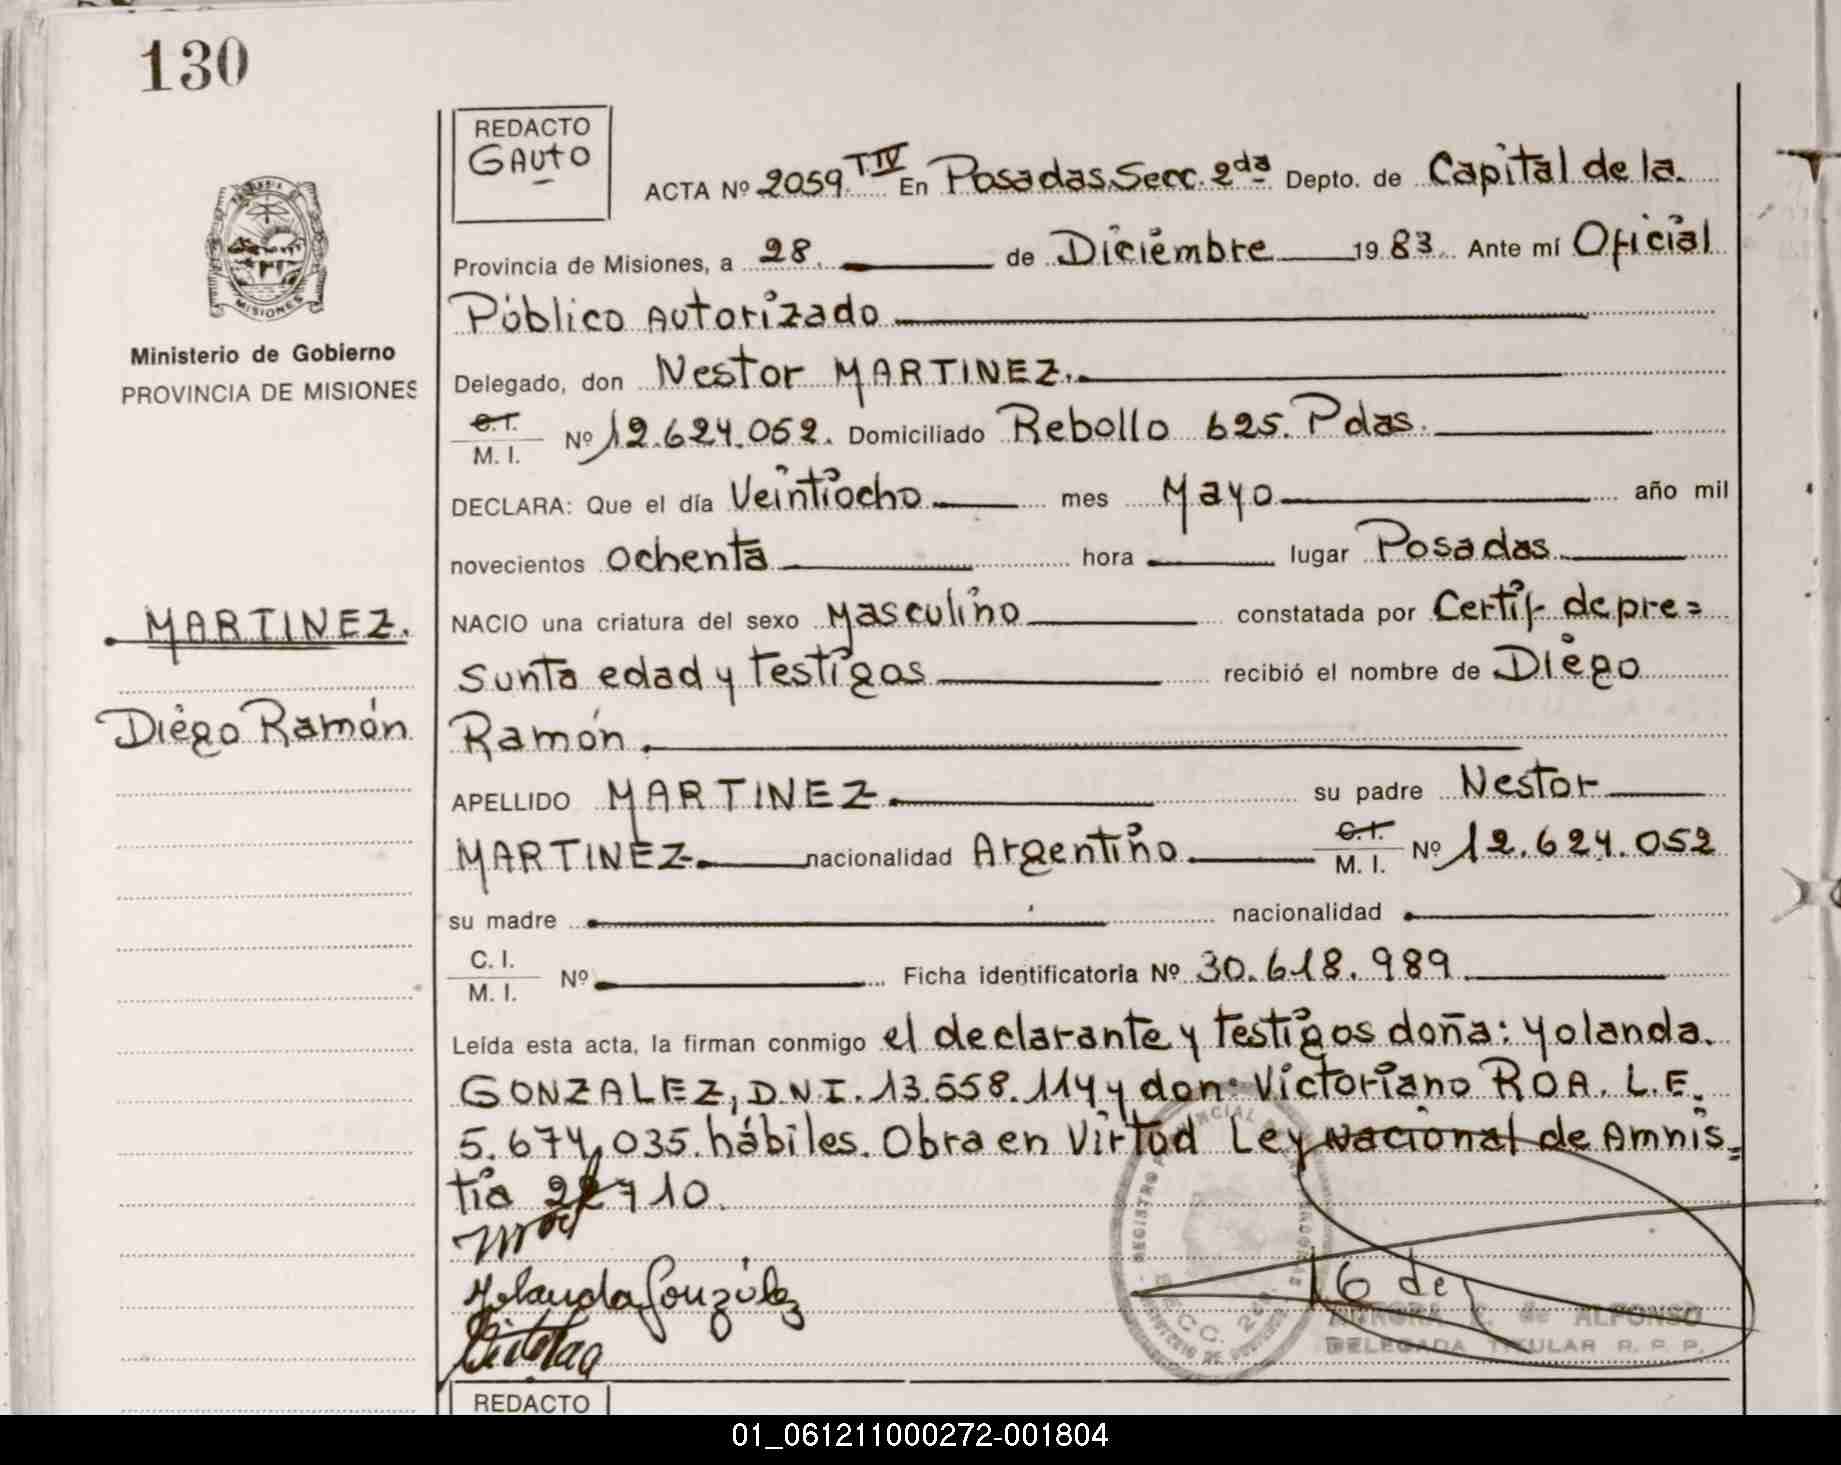 130
REDACTO
GAUTO
ACTA Nº 2059. TIV En Posadas. Secc. 2da Depto. de Capital de la
MISIONES
Provincia de Misiones, a 28. de Diciembre 1983. Ante mí Oficial
Público Autorizado
Ministerio de Gobierno
PROVINCIA DE MISIONES
Delegado, don Nestor MARTINEZ.
C.I. M. I. Nº 12.624.052. Domiciliado Rebollo 625. Pdas.
DECLARA: Que el día Veintiocho mes Mayo año mil
novecientos ochenta hora lugar Posadas
MARTINEZ.
NACIO una criatura del sexo Masculino constatada por Certif. de pre=
sunta edad y testigos recibió el nombre de Diego
Diego Ramón
Ramón.
APELLIDO MARTINEZ su padre Nestor
MARTINEZ nacionalidad Argentino C.I. M. I. Nº 12.624.052
su madre nacionalidad
C. I. M. I. Nº Ficha identificatoria Nº 30.618.989
Leída esta acta, la firman conmigo el declarante y testigos doña: Yolanda.
GONZALEZ, D.N.I. 13.558.114 y don: Victoriano ROA. L.E.
5.674.035. hábiles. Obra en Virtud Ley Nacional de Amnis=
tía 22710.
Yolanda González
REGISTRO
SECC. 2da
AURORA de ALFONSO
DELEGADA TITULAR R. P. P.
REDACTO
01_061211000272-001804